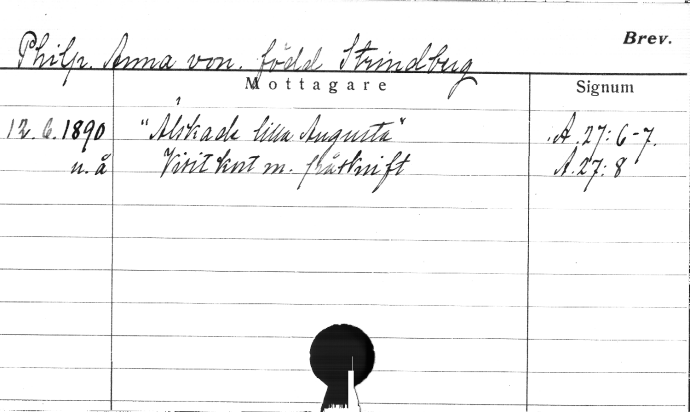 Brev.
Philp. Anna von. född Strindberg
Mottagare Signum
12.6.1890 "Älskade lilla Augusta" A.27:6-7.
u.å Visitkort m. påskrift A.27:8